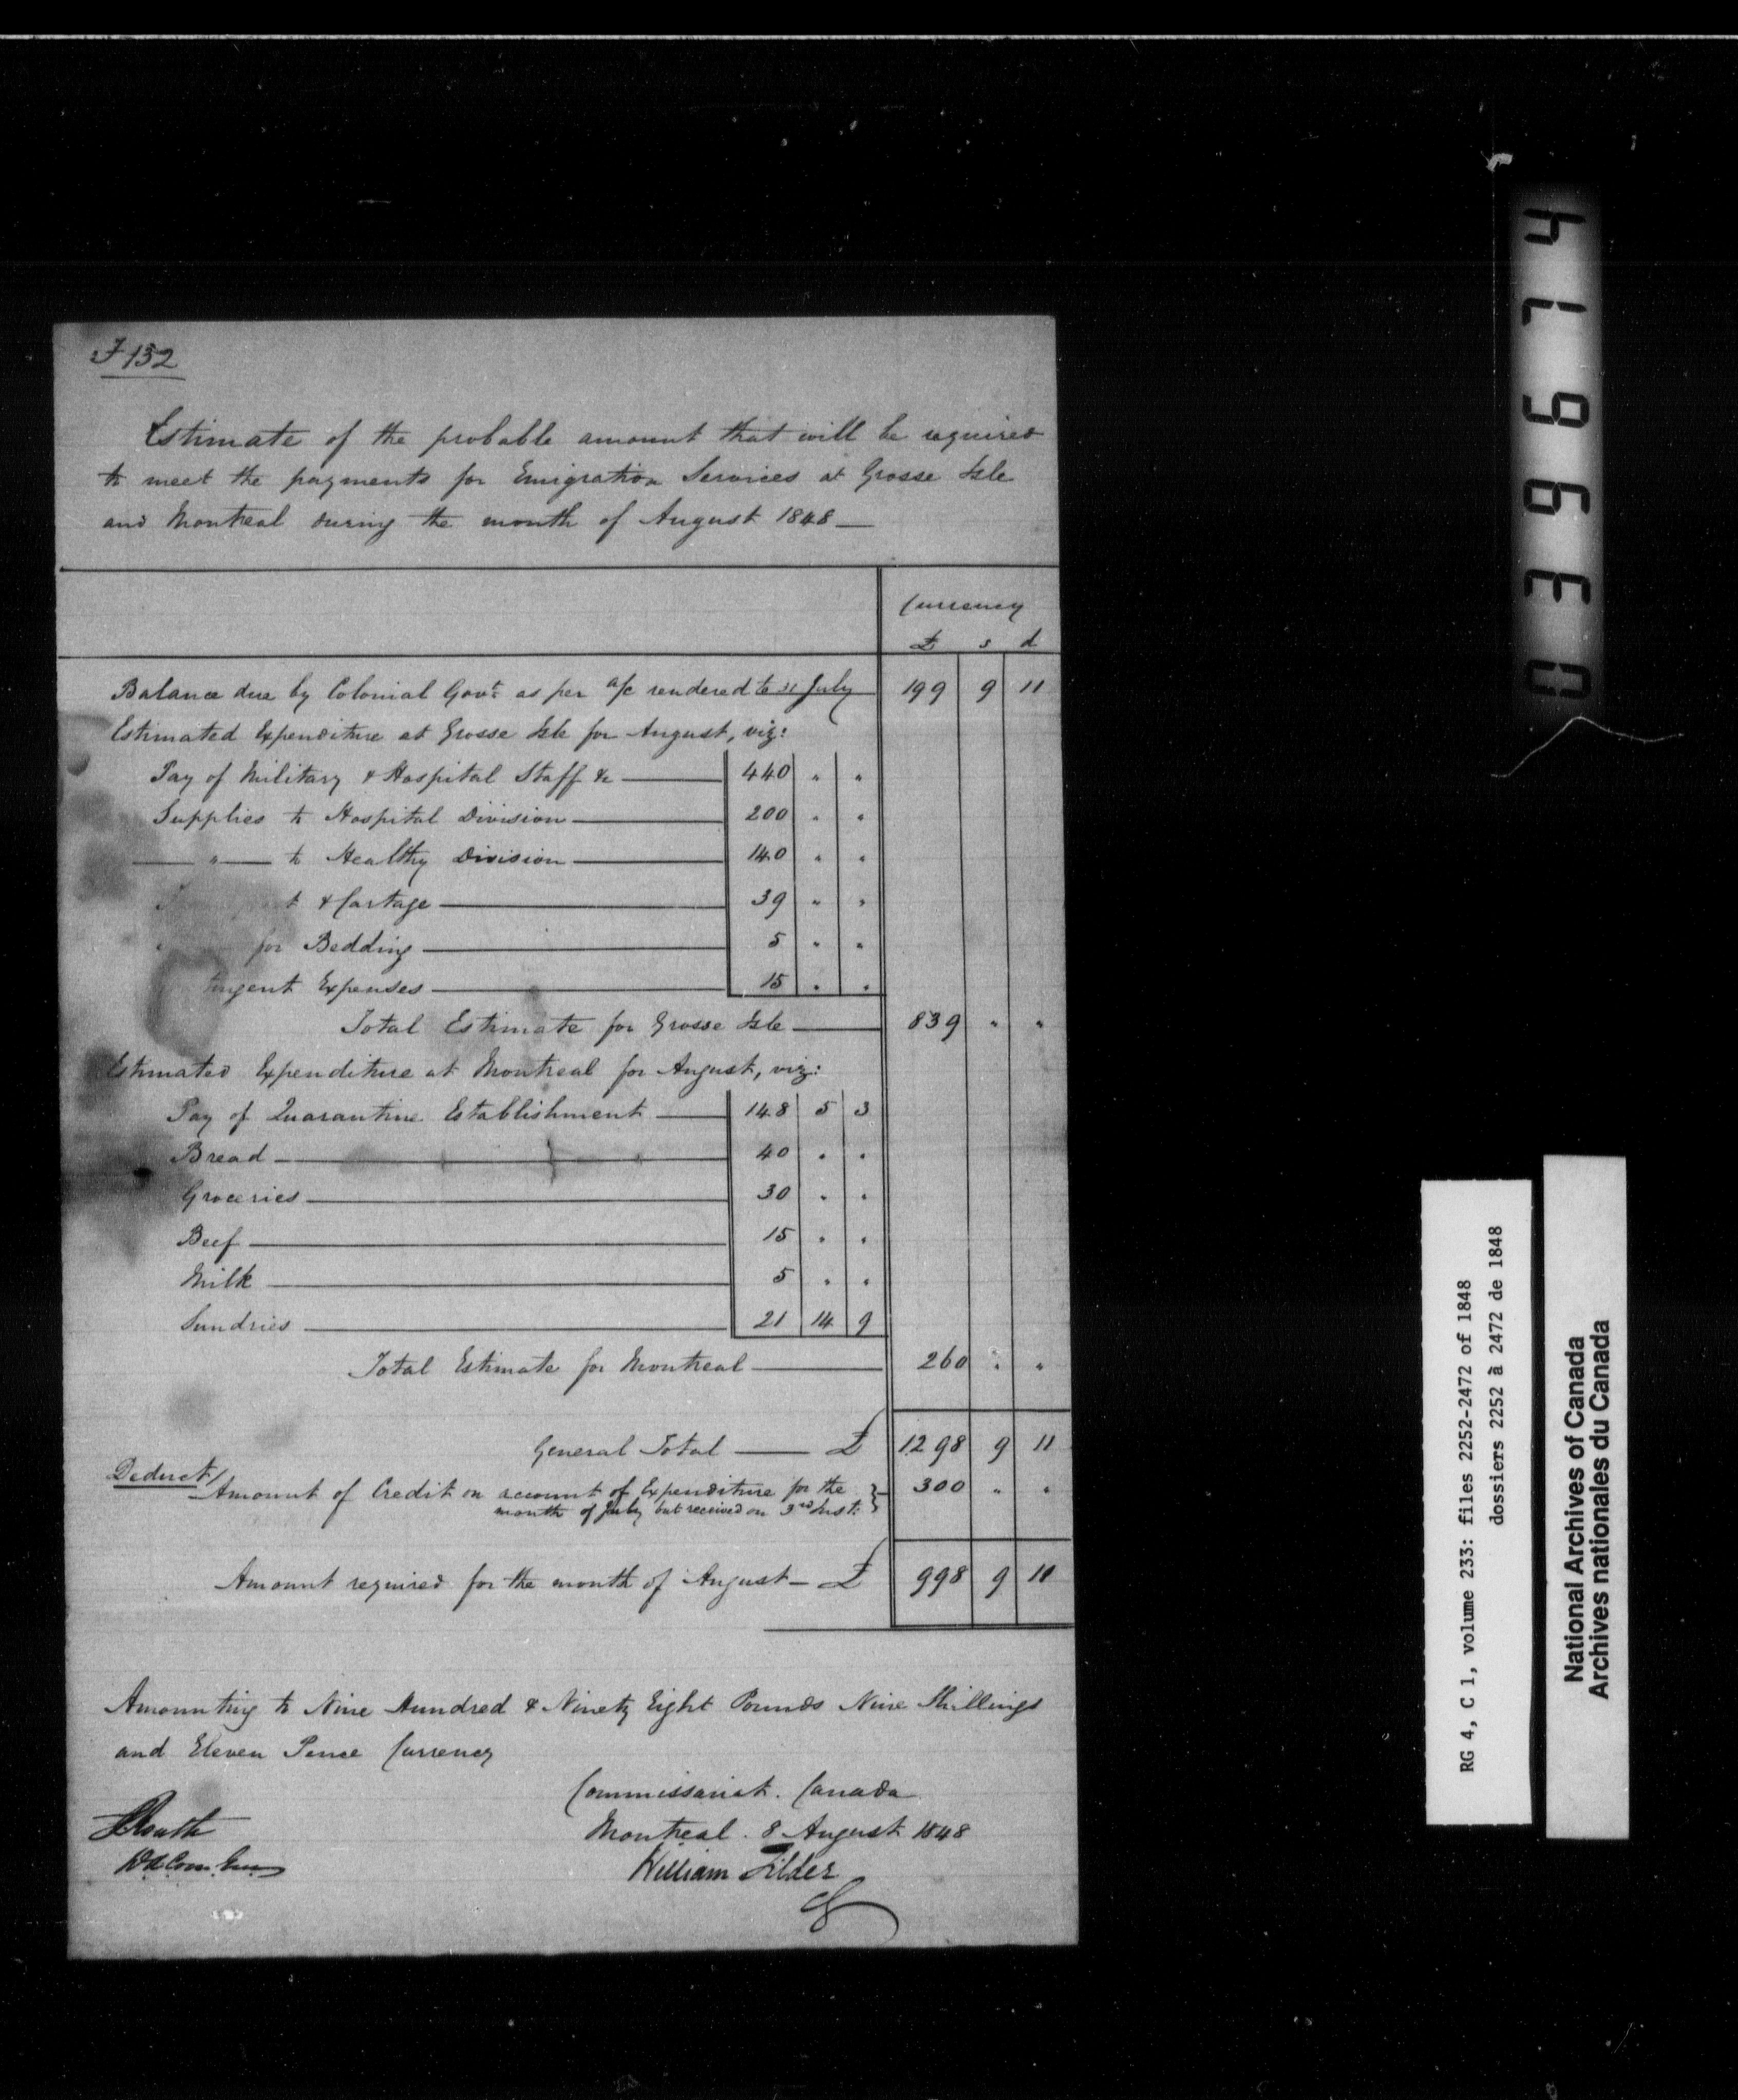 F 152
Estimate of the probable amount that will be required
to meet the payments for Emigration Services at Grosse Isle
and Montreal during the month of August 1848 —
Currency
£ s d
Balance due by Colonial Govt. as per a/c rendered to 31 July 199 9 11
Estimated Expenditure at Grosse Isle for August, viz:
Pay of Military & Hospital Staff &c 440 " "
Supplies to Hospital Division 200 " "
— " — to Healthy Division 140 " "
t & Cartage 39 " "
for Bedding 5 " "
tingent Expenses 15 " "
Total Estimate for Grosse Isle 839 " "
Estimated Expenditure at Montreal for August, viz:
Pay of Quarantine Establishment 148 5 3
Bread 40 " "
Groceries 30 " "
Beef 15 " "
Milk 5 " "
Sundries 21 14 9
Total Estimate for Montreal 260 " "
General Total — £ 1298 9 11
Deduct/
Amount of Credit on account of Expenditure for the 300 " "
month of July but received on 3rd Inst:
Amount required for the month of August — £ 998 9 11
Amounting to Nine Hundred & Ninety Eight Pounds Nine Shillings
and Eleven Pence Currency
Commissariat. Canada
Montreal. 8 August 1848
William Filder
CG
Routh
DACom. Gen
039674
RG 4, C 1, volume 233: files 2252-2472 of 1848
dossiers 2252 à 2472 de 1848
National Archives of Canada
Archives nationales du Canada